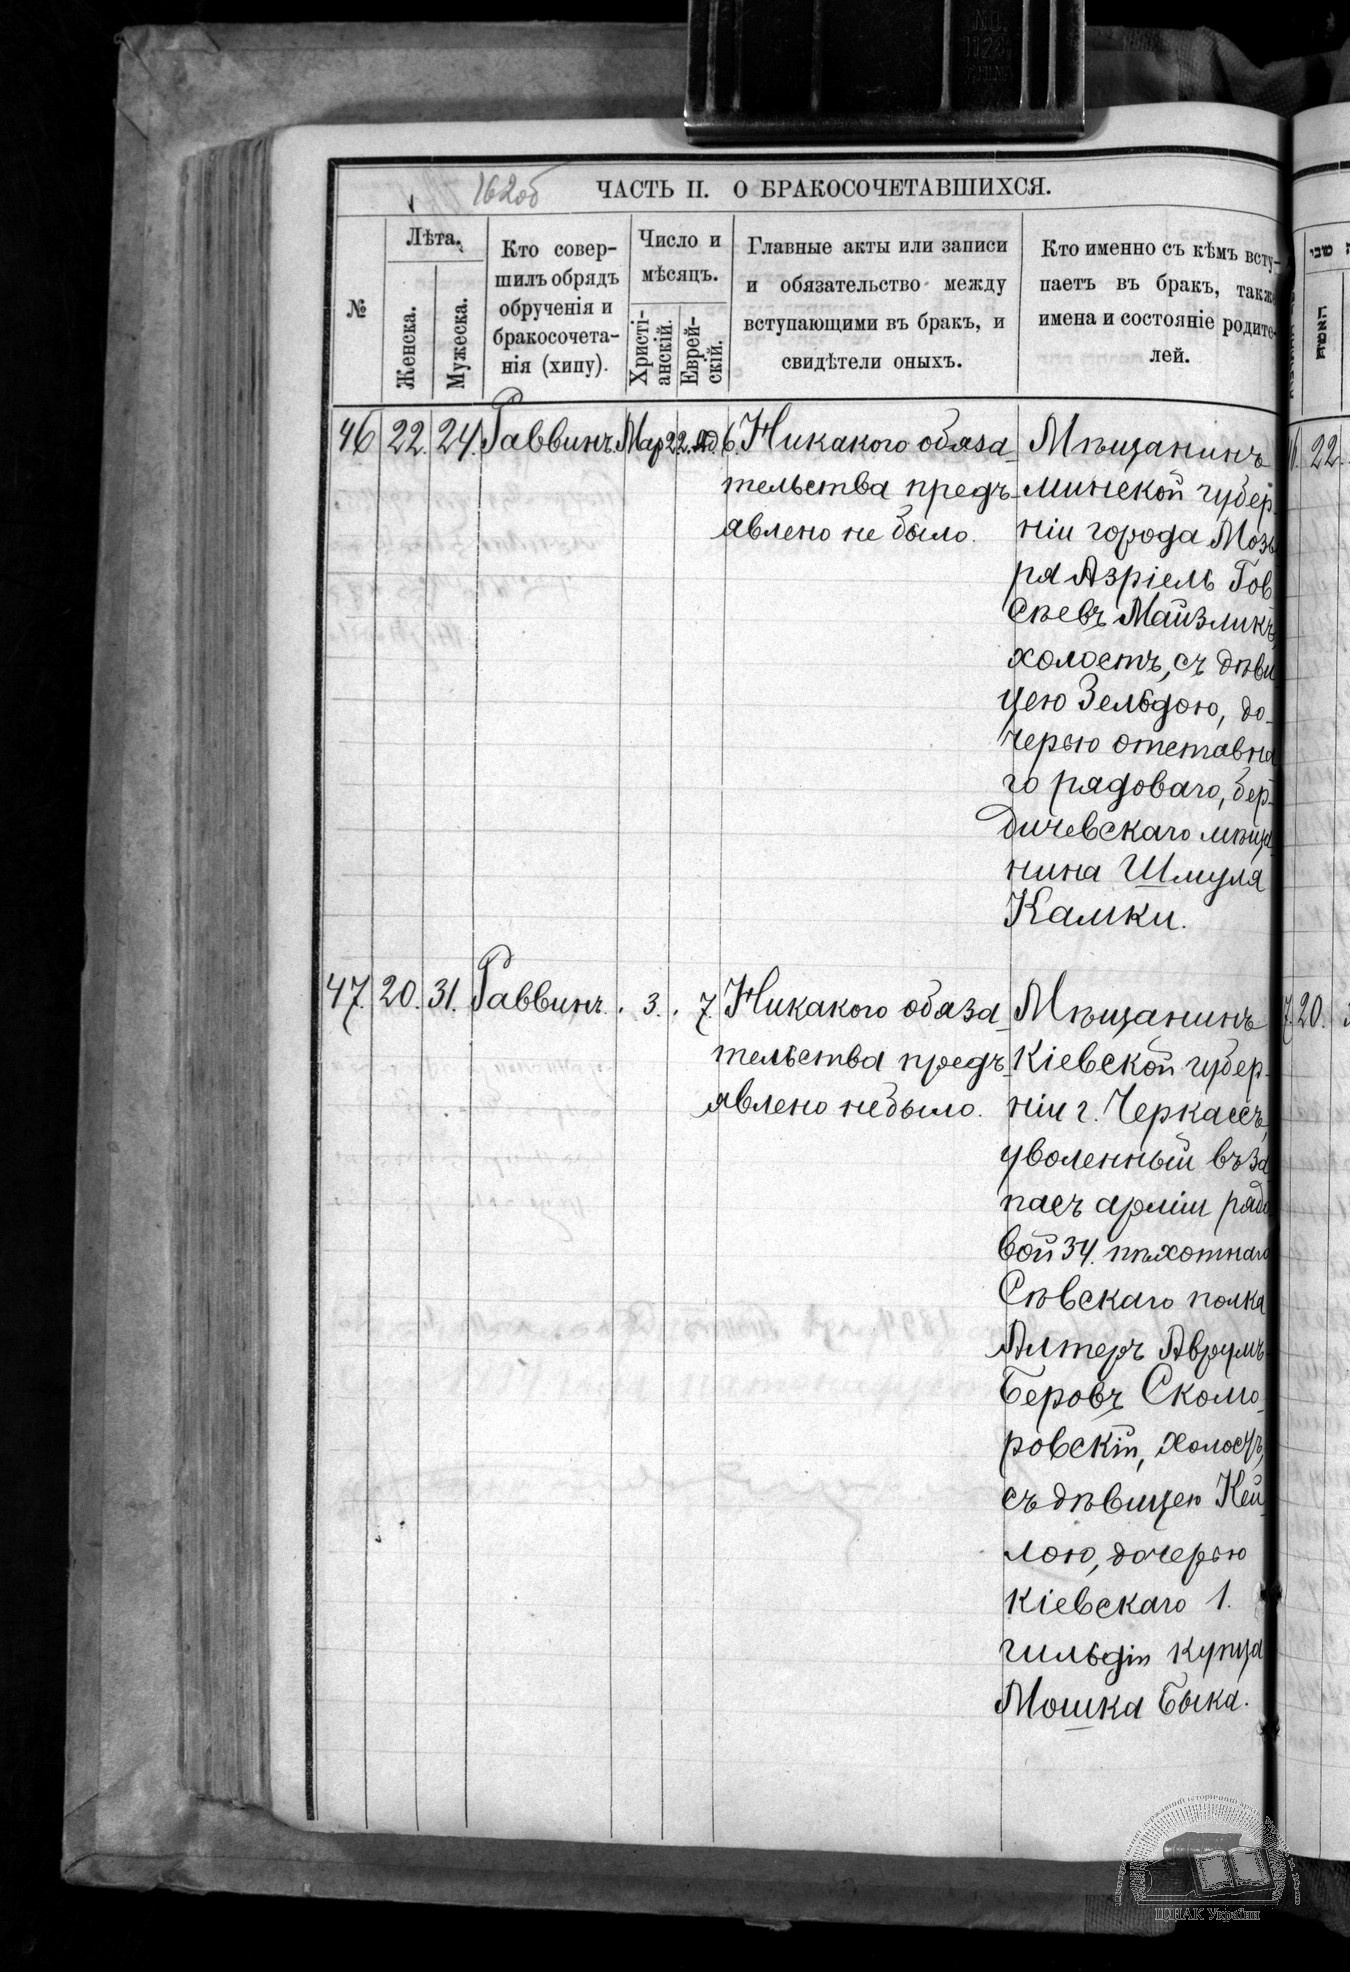 162об
ЧАСТЬ II. О БРАКОСОЧЕТАВШИХСЯ.
№
Лѣта.
Женска.
Мужеска.
Кто совер-
шилъ обрядъ
обрученія и
бракосочета-
нія (хипу).
Число и
мѣсяцъ.
Христі-
анскій.
Еврей-
скій.
Главные акты или записи
и обязательство между
вступающими въ бракъ, и
свидѣтели оныхъ.
Кто именно съ кѣмъ всту-
паетъ въ бракъ, также
имена и состояніе родите-
лей.
46 22. 24. Раввинъ. Мар 2 2. Ад. 6.
Никакого обяза-
тельства предъ-
явлено не было.
Мѣщанинъ
минской губер-
ніи города Мозы
ря Азріель Гов
сѣевъ Майзликъ,
холостъ, съ дѣви
цею Зельдою, до-
черью отставна
го рядоваго, бер-
дичевскаго мѣща
нина Шмуля
Камки.
47. 20. 31. Раввинъ. . 3. . 7.
Никакого обяза-
тельства предъ-
явлено не было.
Мѣщанинъ
Кіевской губер-
ніи г. Черкассъ,
уволенный въ за
пасъ арміи рядо
вой 34. пѣхотнаго
Сѣвскаго полка
Алтеръ Аврумъ
Беровъ Скомо-
ровскій, холостъ,
съ дѣвицею Кей-
лою, дочерью
Кіевскаго 1.
гильдіи купца
Мошка Быка.
שבי
האשה
6. 22.
7. 20.
ЦДІАК України